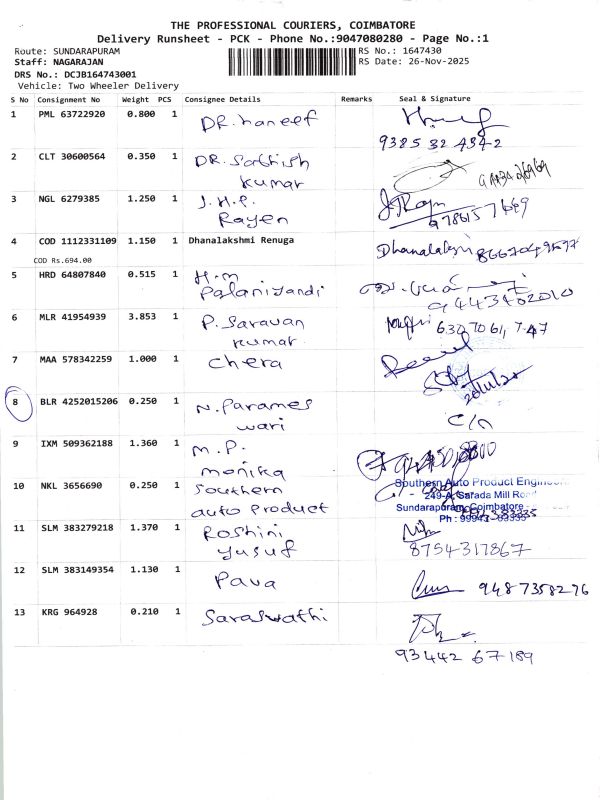 THE PROFESSIONAL COURIERS, COIMBATORE
Delivery Runsheet - PCK - Phone No.:9047080280 - Page No.:1
Route: SUNDARAPURAM
RS No.: 1647430
Staff: NAGARAJAN
RS Date: 26-Nov-2025
DRS No.: DCJB164743001
Vehicle: Two Wheeler Delivery
S No Consignment No Weight PCS Consignee Details Remarks Seal & Signature
1 PML 63722920 0.800 1 DR. haneef
93853243 42
2 CLT 30600564 0.350 1 DR. Sathish
kumar
3 NGL 6279385 1.250 1 J.H.P.
Rayen
4 COD 1112331109 1.150 1 Dhanalakshmi Renuga
COD Rs.694.00
5 HRD 64807840 0.515 1 H.M
Palaniyandi
9443402010
6 MLR 41954939 3.853 1 P. Saravan
kumar
7 MAA 578342259 1.000 1 chera
8 BLR 4252015206 0.250 1 N. Parames
wari
9 IXM 509362188 1.360 1 M.P.
monika
10 NKL 3656690 0.250 1 Southern
auto product
Southern Auto Product Engineer
249-A, Sarada Mill Road
Sundarapuram, Coimbatore
11 SLM 383279218 1.370 1 Roshini
yusuf
8754317867
12 SLM 383149354 1.130 1 Pava
9487358276
13 KRG 964928 0.210 1 Saraswathi
93442 67189